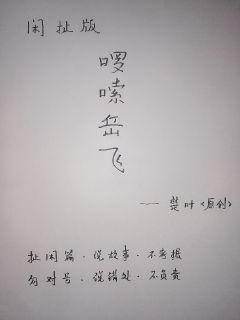 闲扯版
啰嗦岳飞
—— 楚叶《原创》
扯闲篇·侃故事·不考据
勿对号·说错处·不负责